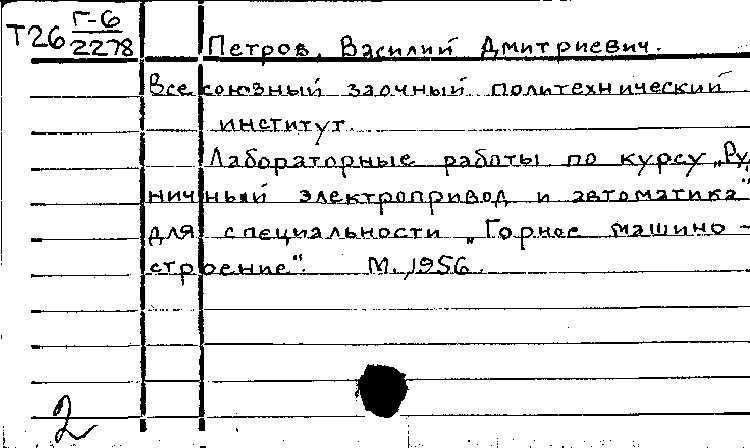 Т26 Г-6
2278
Петров, Василий Дмитриевич.
Всесоюзный заочный политехнический
институт.
Лабораторные работы по курсу „Руд
ничный электропривод и автоматика"
для специальности „Горное машино-
строение". М., 1956.
2